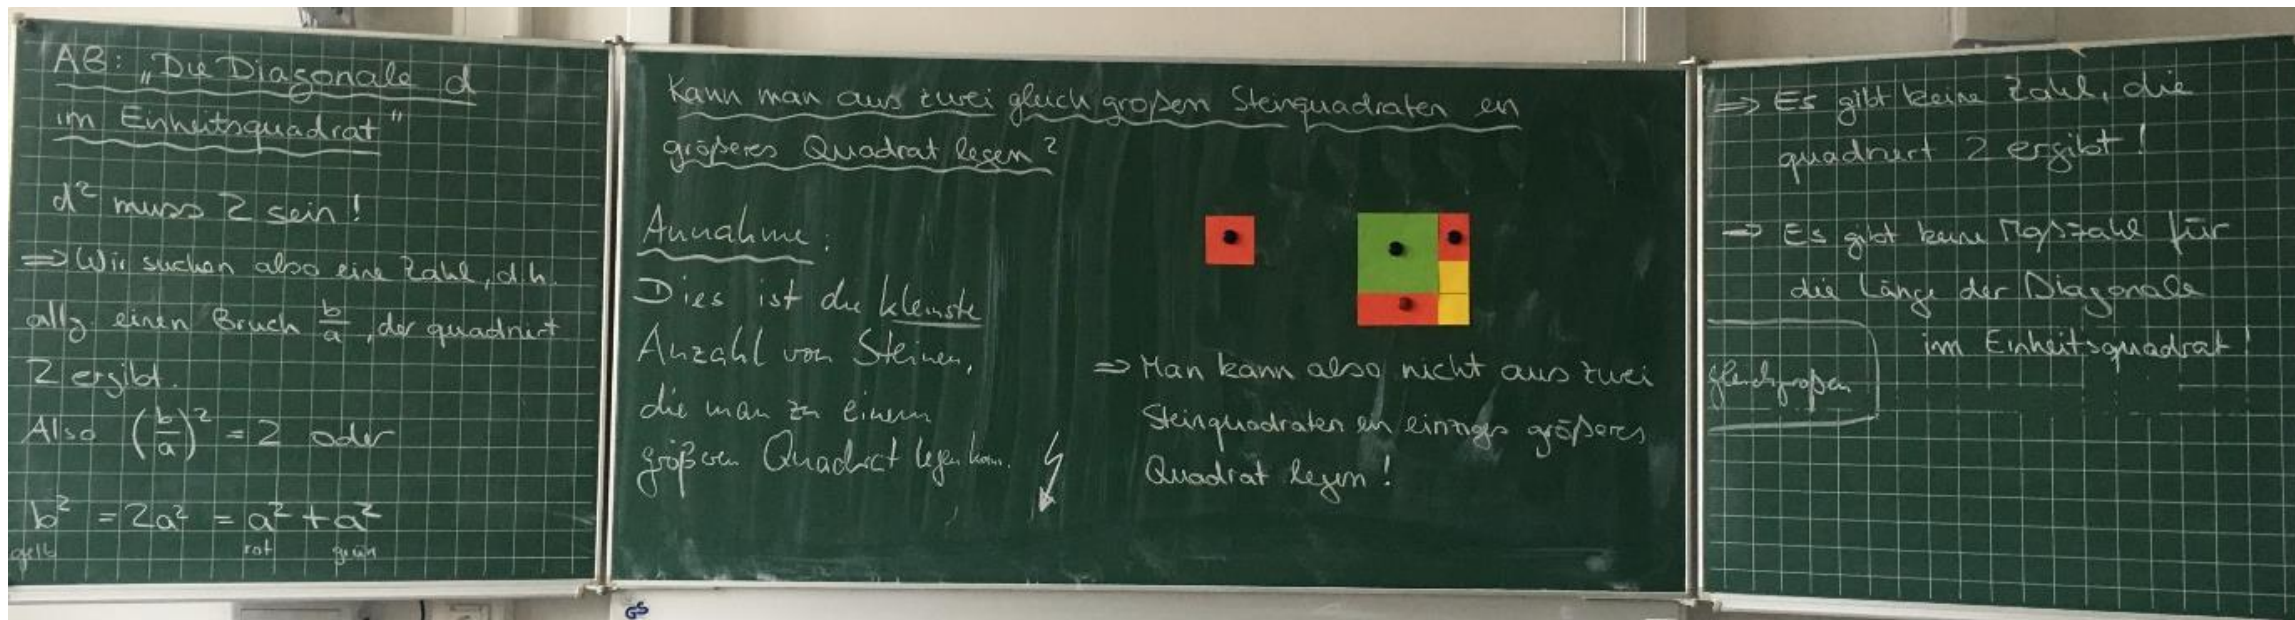 AB: „Die Diagonale d
im Einheitsquadrat"
d² muss 2 sein!
⇒ Wir suchen also eine Zahl, d.h.
allg. einen Bruch b/a, der quadriert
2 ergibt.
Also (b/a)² = 2 oder
b² = 2a² = a² + a²
gelb rot grün
Kann man aus zwei gleich großen Steinquadraten ein
größeres Quadrat legen?
Annahme:
Dies ist die kleinste
Anzahl von Steinen,
die man zu einem
größeren Quadrat legen kann.
⇒ Man kann also nicht aus zwei
Steinquadraten ein einziges größeres
Quadrat legen!
GS
⇒ Es gibt keine Zahl, die
quadriert 2 ergibt!
⇒ Es gibt keine Maßzahl für
die Länge der Diagonale
im Einheitsquadrat!
gleichgroßen